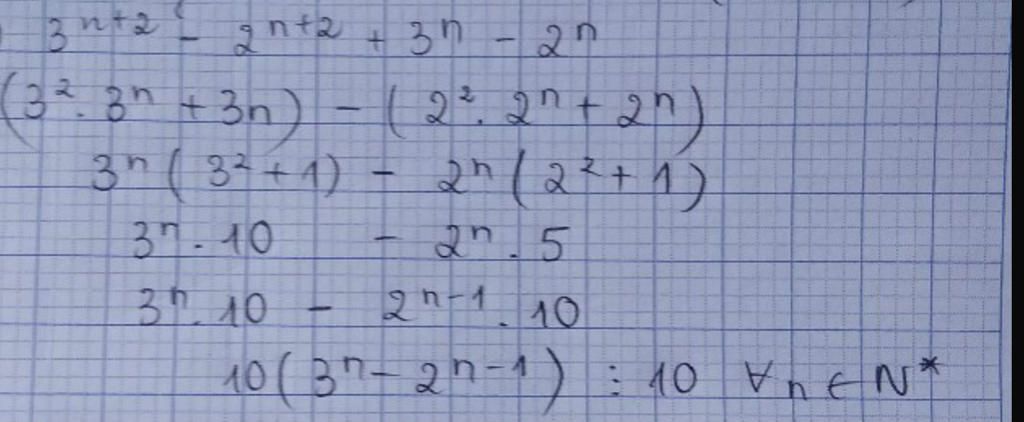 3ⁿ⁺² - 2ⁿ⁺² + 3ⁿ - 2ⁿ
(3² . 3ⁿ + 3n) - (2² . 2ⁿ + 2ⁿ)
3ⁿ(3² + 1) - 2ⁿ(2² + 1)
3ⁿ . 10 - 2ⁿ . 5
3ⁿ . 10 - 2ⁿ⁻¹ . 10
10(3ⁿ - 2ⁿ⁻¹) ⋮ 10 ∀n ∈ N*